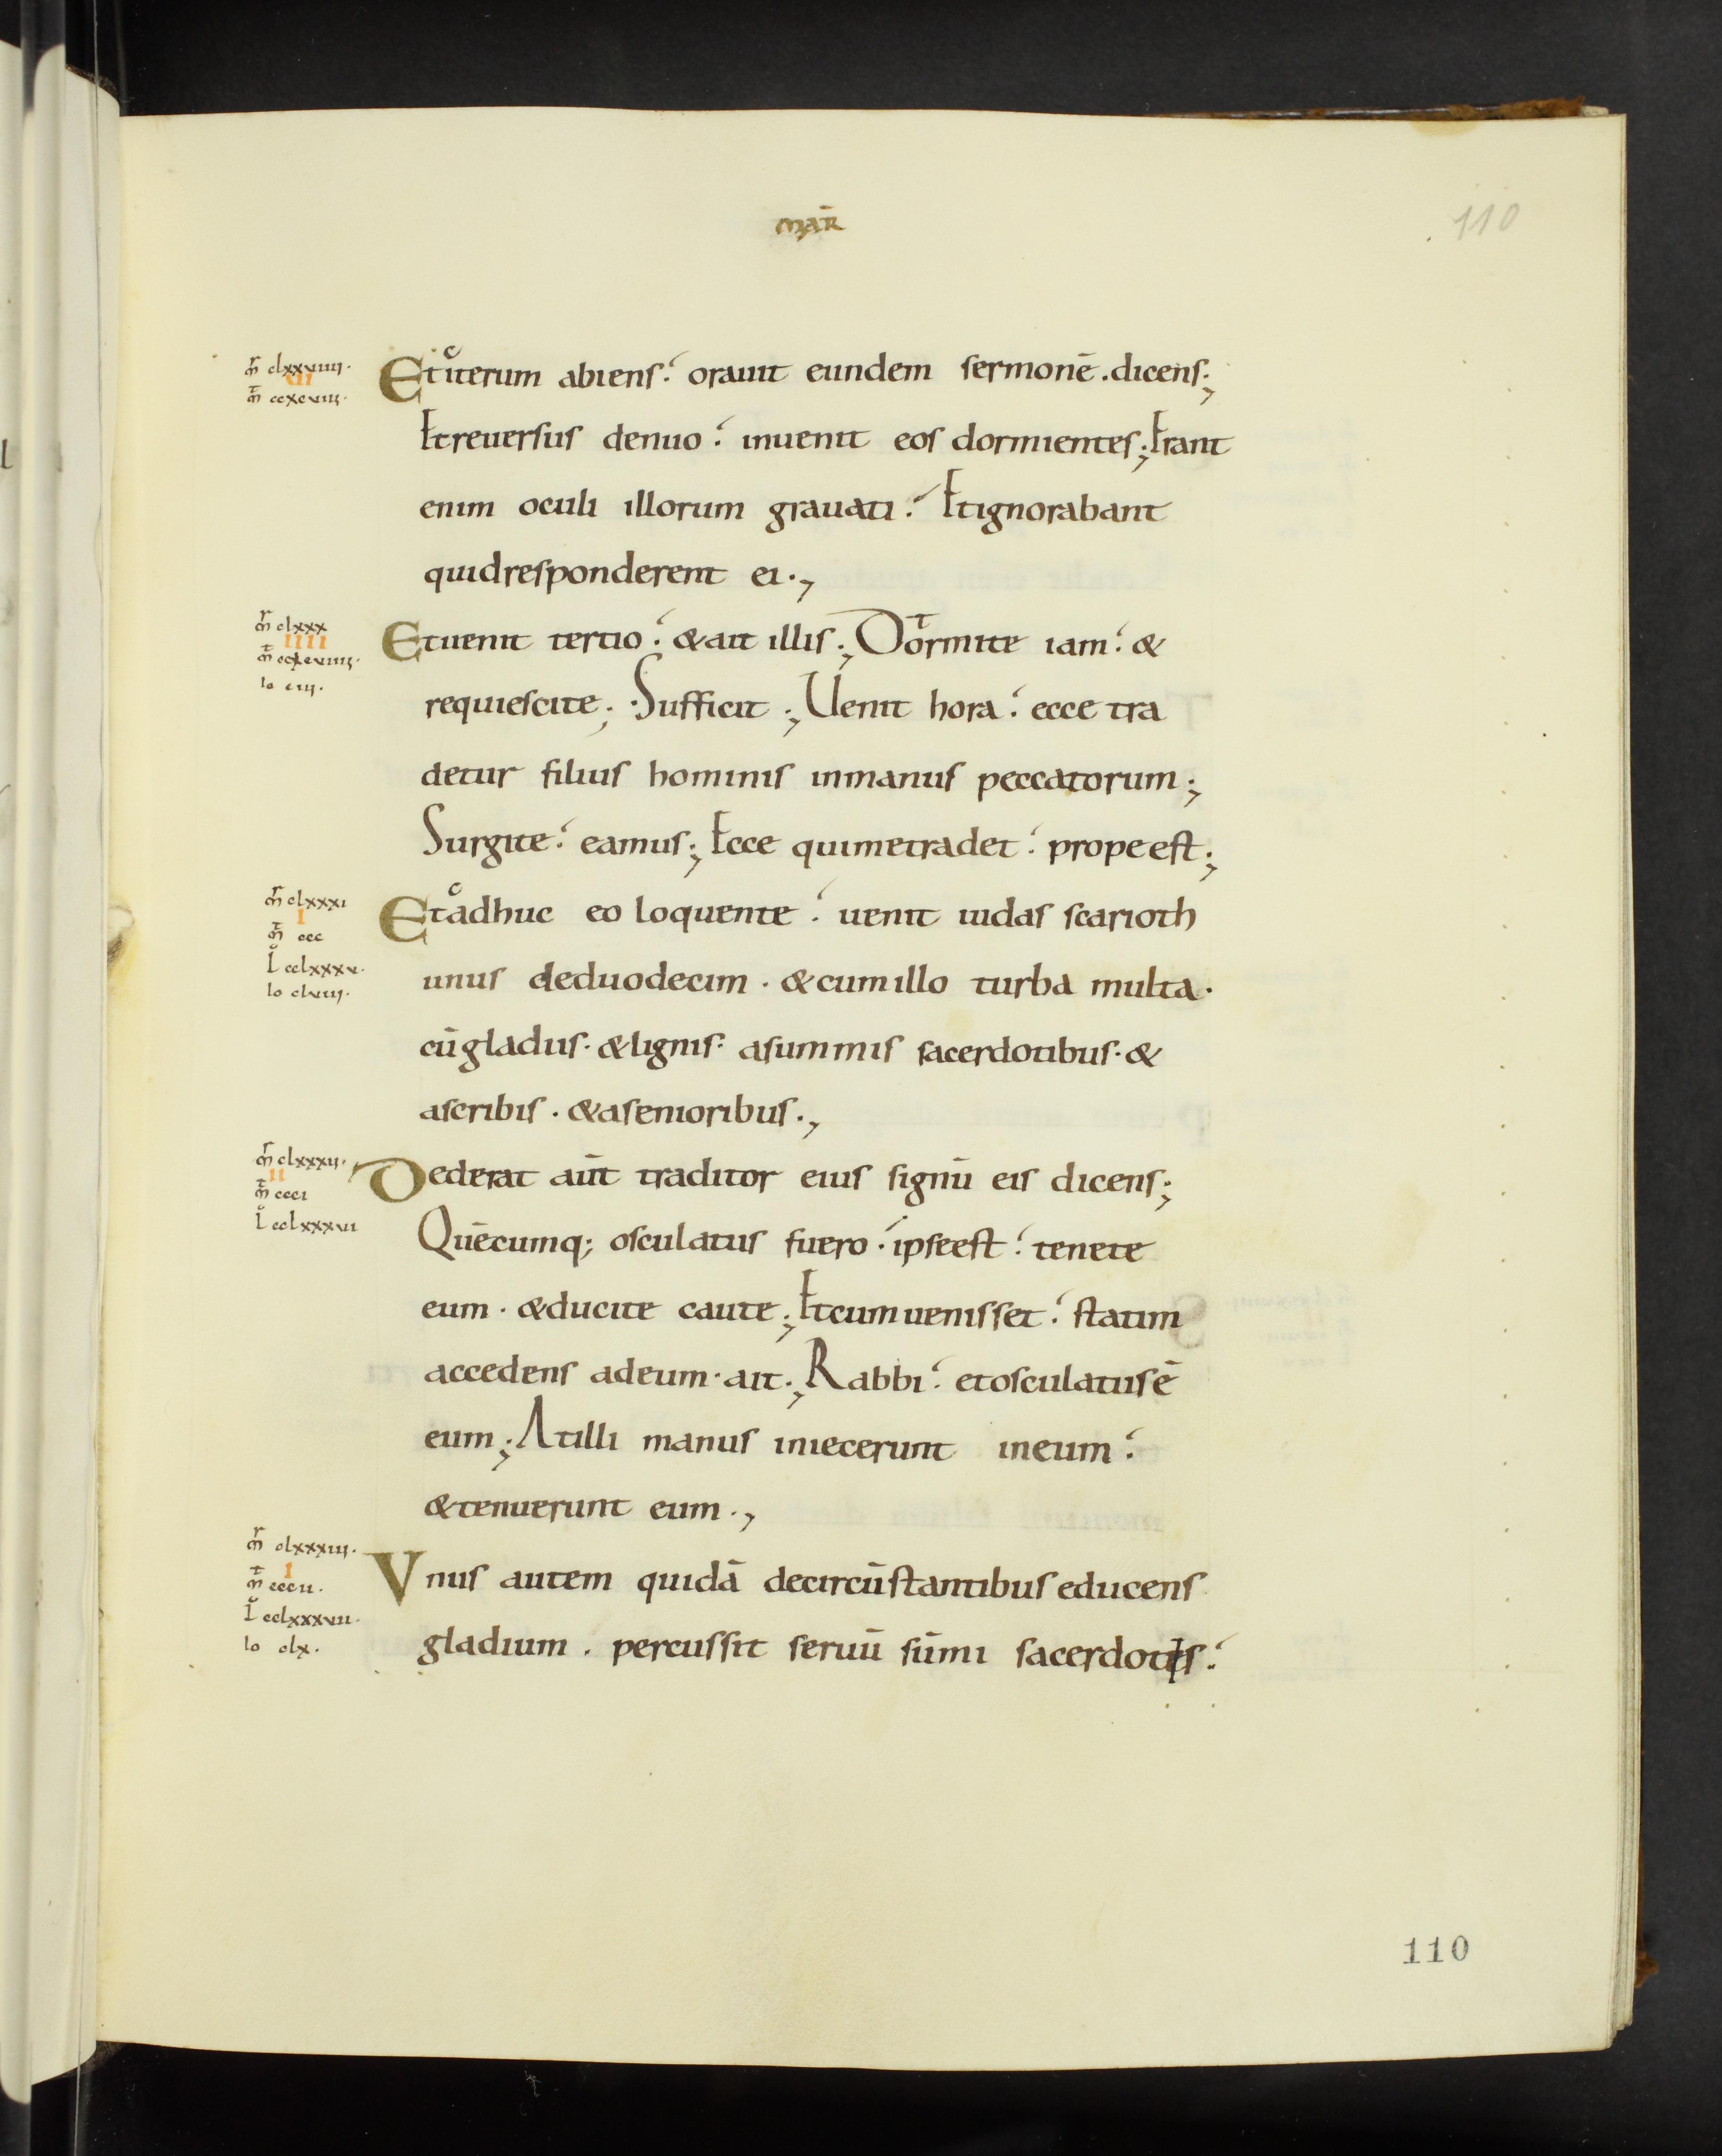 mar̄
110
mr̄ clxxviiii·
VII
mt̄ ccxcviii·
Et iterum abiens· orauit eundem sermonē. dicens;
Et reuersus denuo· inuenit eos dormientes; Erant
enim oculi illorum grauati· Et ignorabant
quid responderent ei·,
mr̄ clxxx
IIII
mt̄ ccxcviiii·
io ciii·
Et uenit tertio· & ait illis; Dormite iam· &
requiescite; Sufficit; Uenit hora· ecce tra
detur filius hominis in manus peccatorum;
Surgite· eamus; Ecce qui me tradet· prope est;
mr̄ clxxxi
I
mt̄ ccc
l cclxxxv·
io clviii·
Et adhuc eo loquente· uenit iudas scarioth
unus de duodecim · & cum illo turba multa·
cū gladiis· & lignis· a summis sacerdotibus· &
a scribis · & a senioribus·,
mr̄ clxxxii·
II
mt̄ ccci
l cclxxxvi
Dederat aūt traditor eius signū eis dicens;
Quēcumq; osculatus fuero· ipse est· tenete
eum · & ducite caute; Et cum uenisset· statim
accedens ad eum· ait·; Rabbi· et osculatus ē
eum; At illi manus iniecerunt in eum·
& tenuerunt eum·,
mr̄ clxxxiii·
I
mt̄ cccii·
l cclxxxvii·
io clx·
Vnus autem quidā de circū stantibus educens
gladium · percussit seruū sūmi sacerdotis·
110